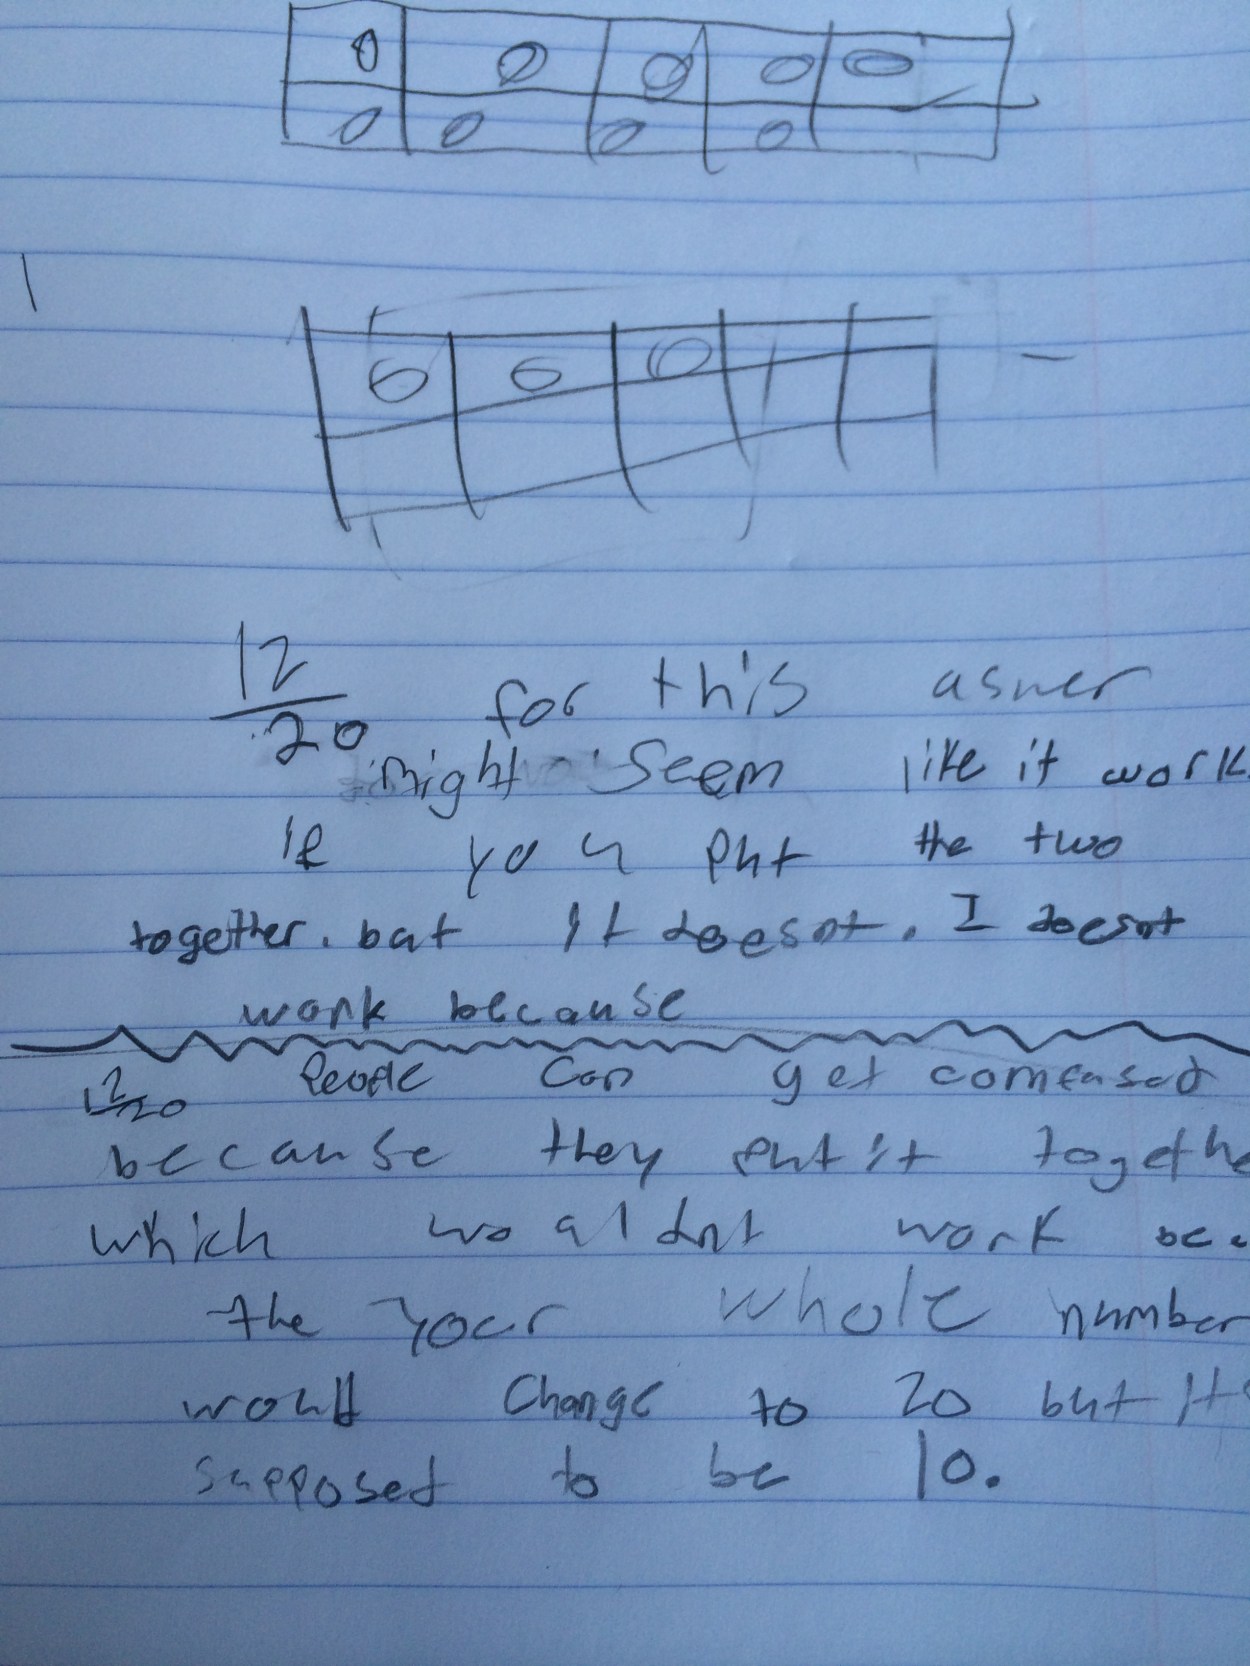 12
20
for this asner
might seem like it work
if you put the two
together. but it doesnt. I doesnt
work because
12/20 People can get comfused
because they put it togethe
which woaldnt work bec
the your whole number
would change to 20 but it
supposed to be 10.